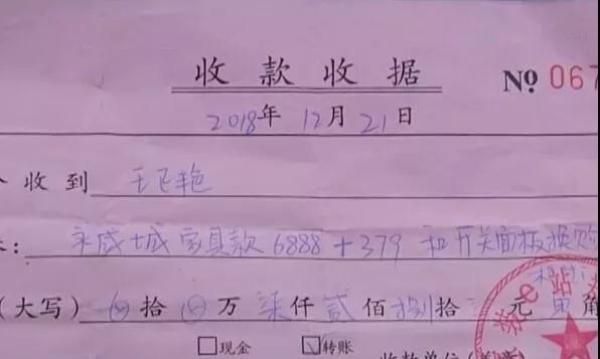 收款收据
№ 067
2018年12月21日
收到 王飞艳
城家具款6888+379 和开关面板换购
(大写) 拾 万 柒仟 贰佰 捌拾 元 角
□现金 ☑转账
收款单位